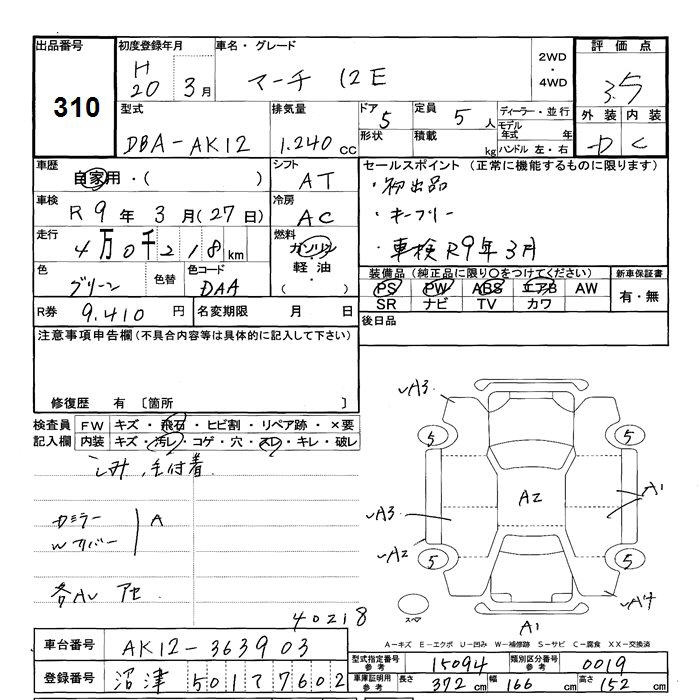 出品番号
310
初度登録年月
H
20 3月
車名・グレード
マーチ 12E
2WD
・
4WD
評価点
3.5
外装 内装
D C
型式
DBA-AK12
排気量
1.240 cc
ドア 5
形状
定員 5 人
積載 kg
ディーラー・並行
モデル年式 年
ハンドル 左・右
車歴
自家用・( )
シフト
AT
車検
R 9年 3月(27日)
冷房
AC
走行
4万0千218km
燃料
ガソリン
軽油
・( )
色
グリーン
色替
色コード
DAA
R券 9.410 円
名変期限 月 日
セールスポイント(正常に機能するものに限ります)
・初出品
・キーフリー
・車検R9年3月
装備品(純正品に限り○をつけてください)
PS PW ABS エアB AW
SR ナビ TV カワ
新車保証書
有・無
後日品
注意事項申告欄(不具合内容等は具体的に記入して下さい)
修復歴 有 〔箇所 〕
検査員記入欄
FW キズ・飛石・ヒビ割・リペア跡・×要
内装 キズ・汚レ・コゲ・穴・スレ・キレ・破レ
シミ,毛付着
カミラー
Wカバー
A
各AU アセ
40218
A3
5
5
A3
A2
A2
A1
5
5
A4
スペア
A1
A-キズ E-エクボ U-凹み W-補修跡 S-サビ C-腐食 XX-交換済
車台番号 AK12-363903
登録番号 沼津 501 7602
型式指定番号 参考 15094
類別区分番号 参考 0019
車庫証明用 参考 長さ 372cm 幅 166cm 高さ 152cm